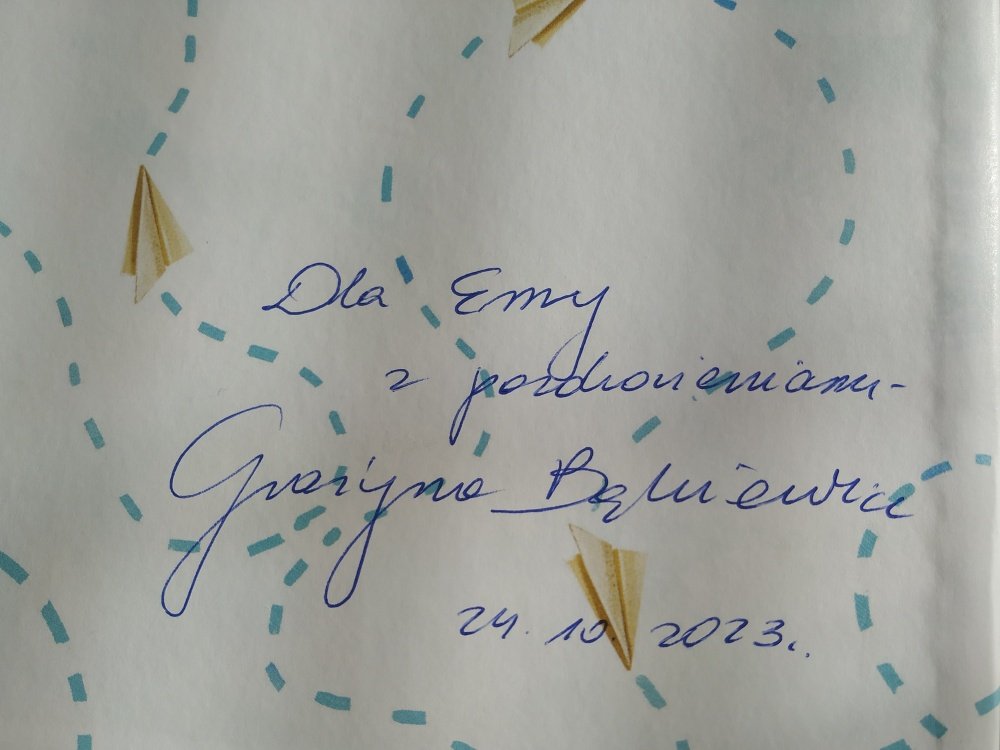 Dla Emy
z pozdrowieniami-
Grażyna Bąkiewicz
24.10.2023r.